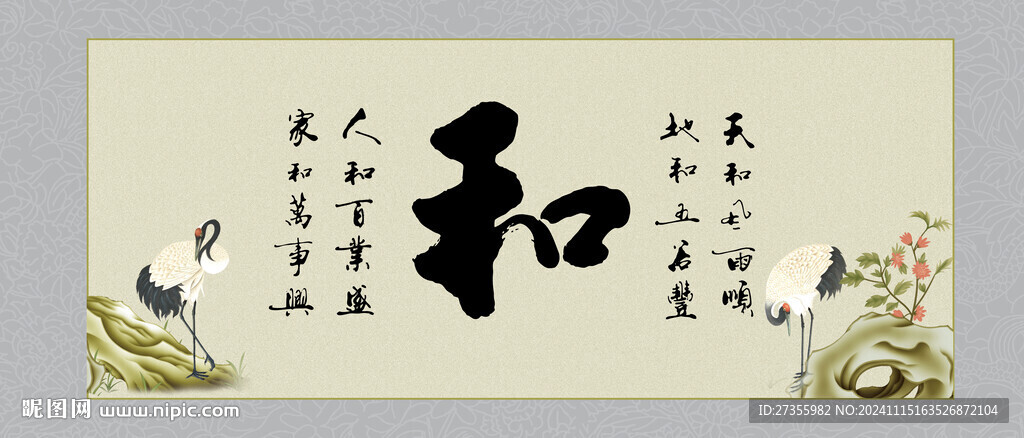 天和风雨順
地和五谷豐
和
人和百業盛
家和萬事興
昵图网 www.nipic.com
ID:27355982 NO:20241115163526872104